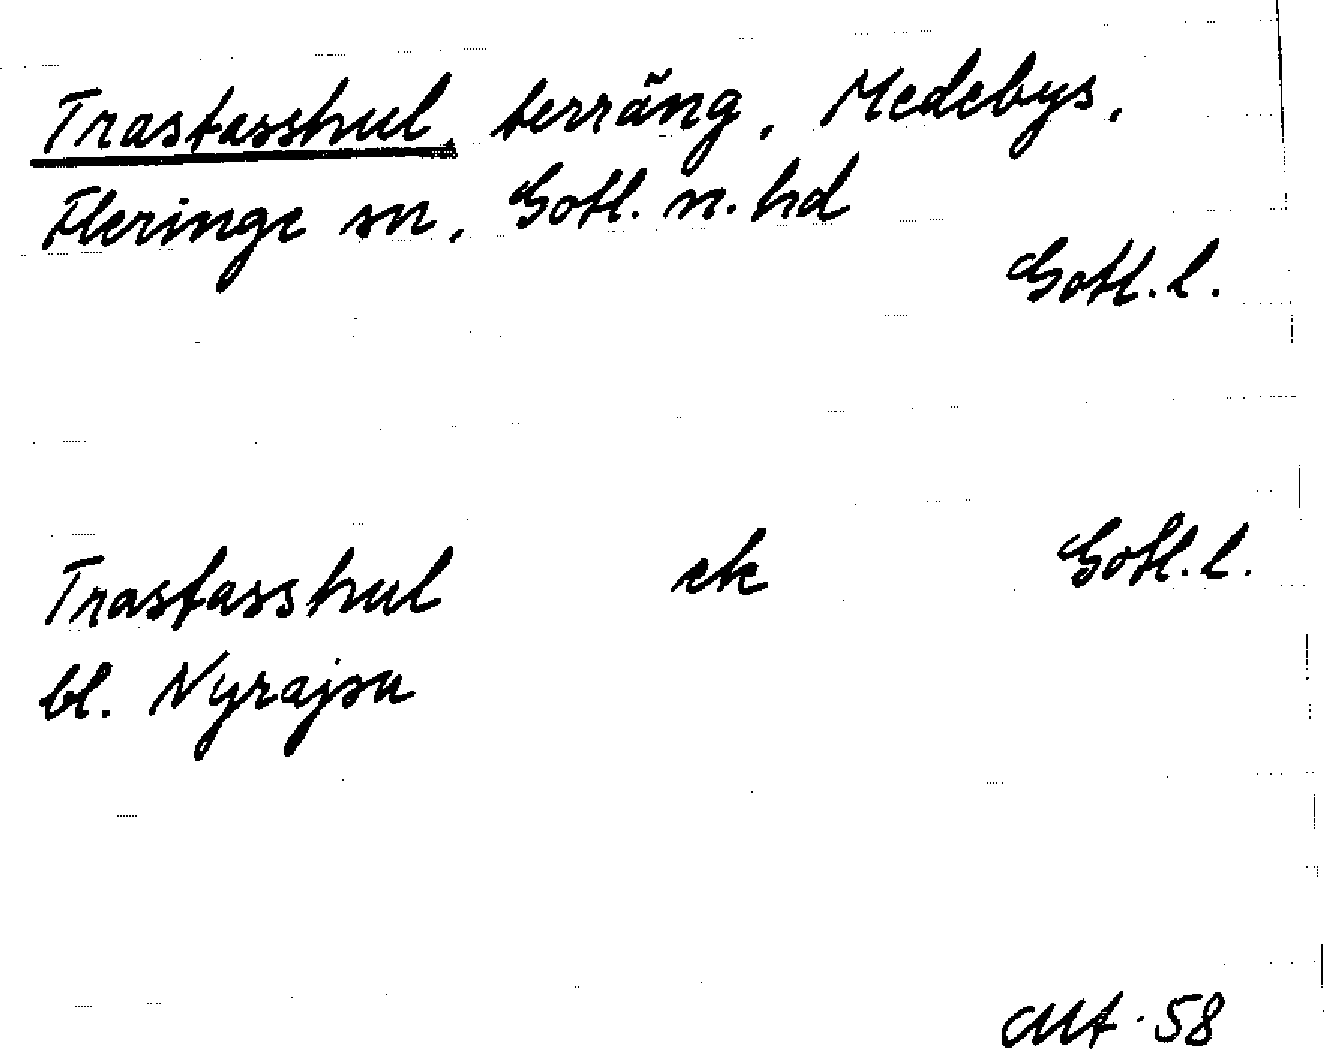 Trastasshul, terräng, Medebys,
Fleringe sn, Gotl. n. hd
Gotl. l.
Trastasshul ek Gotl. l.
bl. Nyrajsu
58